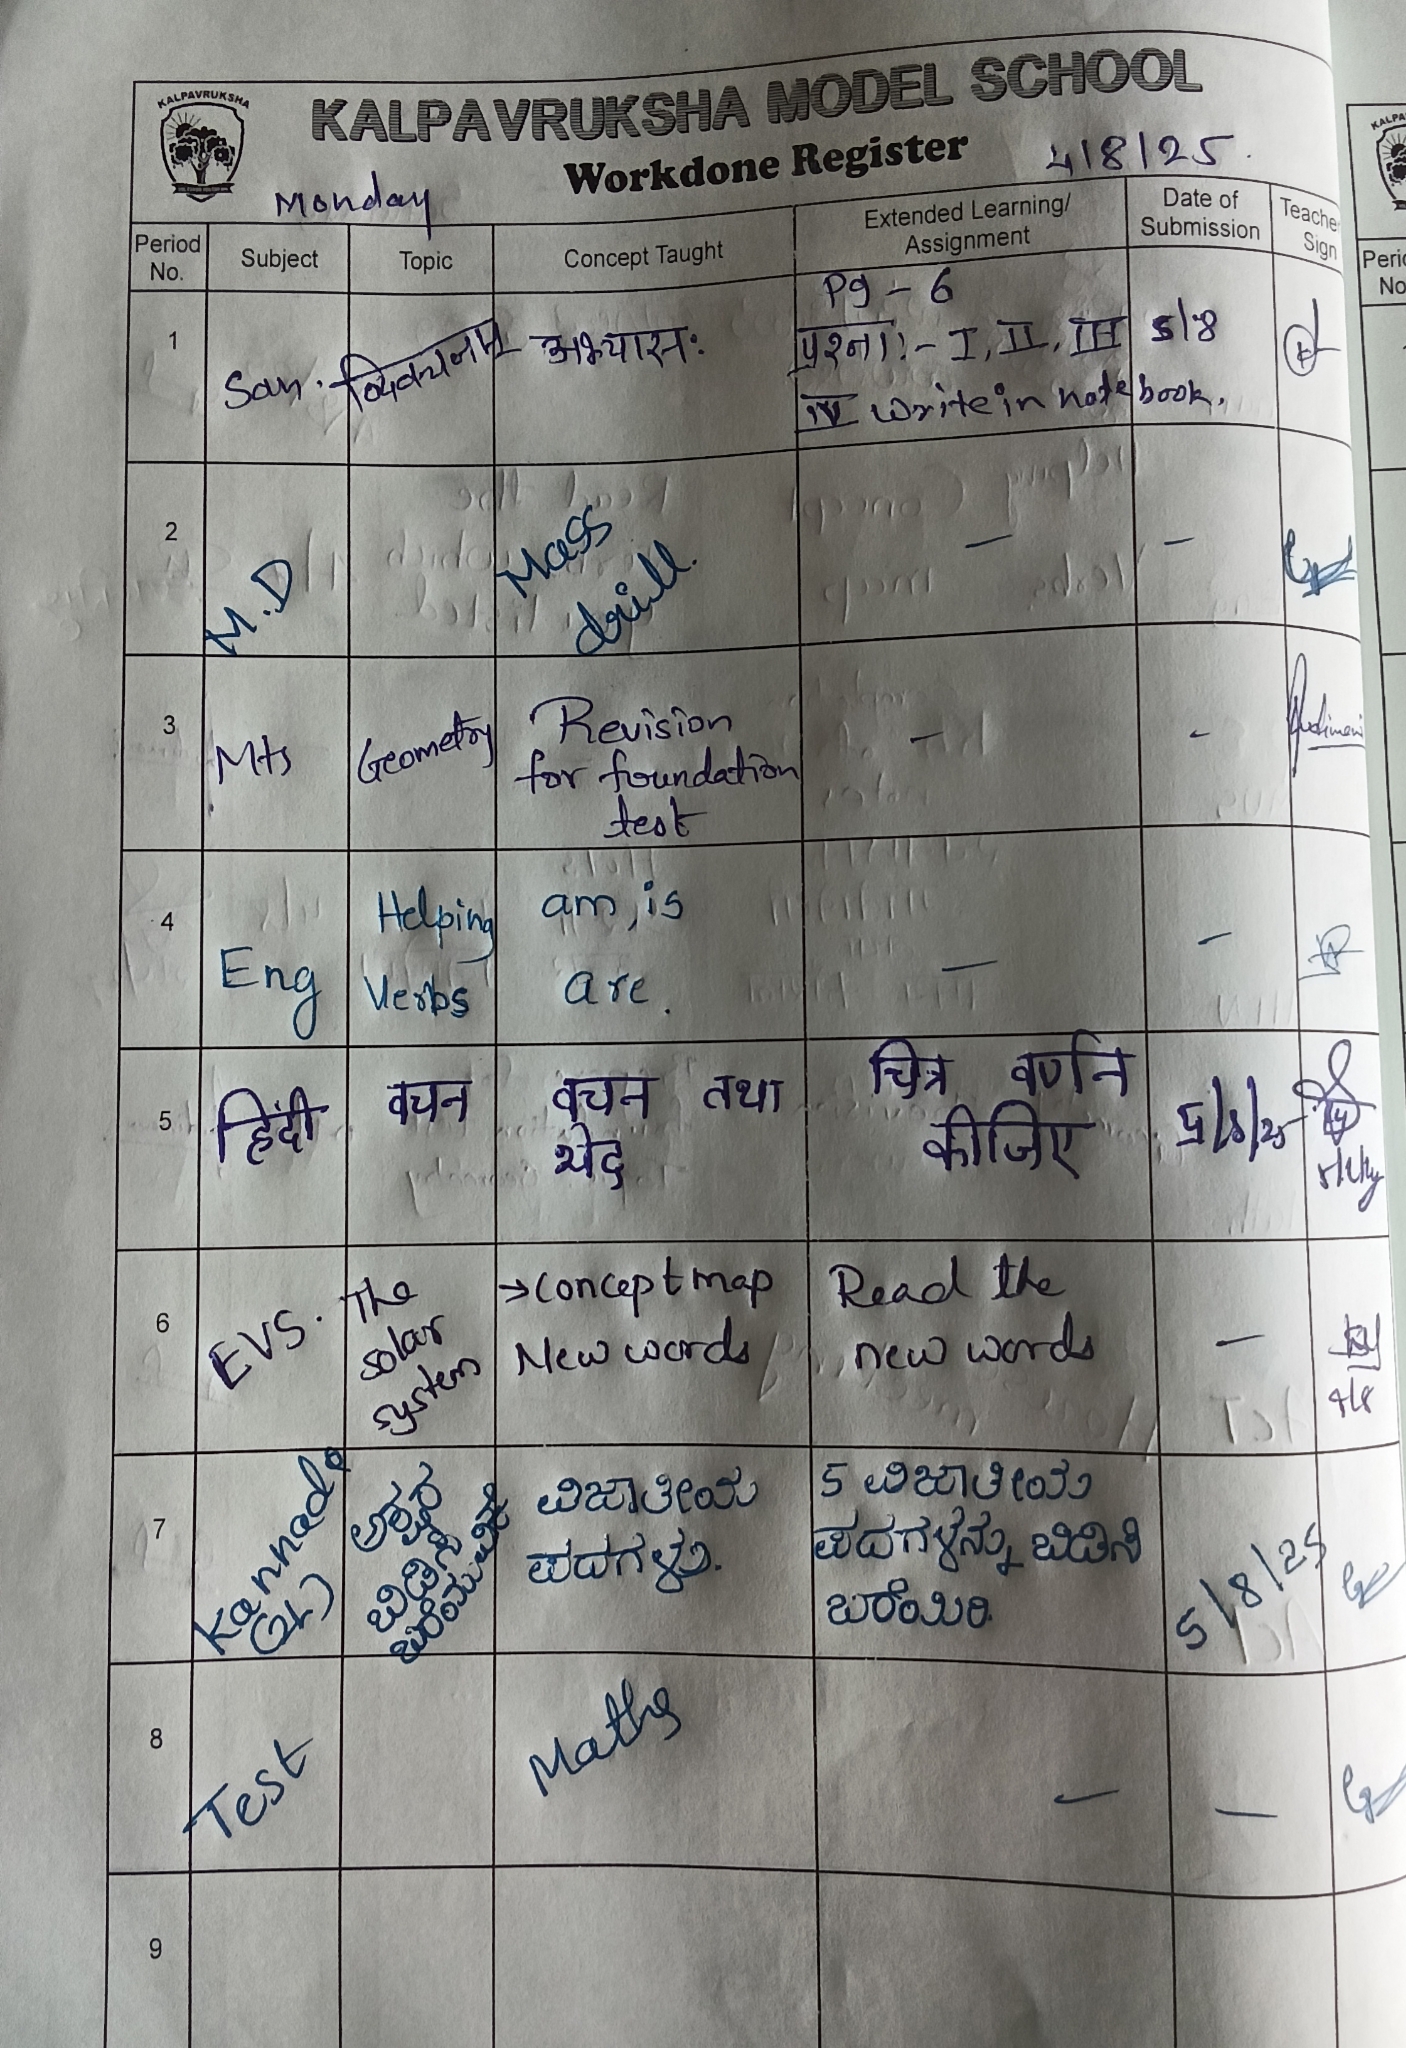 KALPAVRUKSHA
KALPAVRUKSHA MODEL SCHOOL
Workdone Register
4/8/25.
Monday
Period No.
Subject
Topic
Concept Taught
Extended Learning/
Assignment
Date of
Submission
Teache
Sign
1
San.
अभ्यासः
Pg - 6
प्रश्नाः- I, II, III
IV write in notebook.
5/8
2
M.D
Mass
drill.
-
-
3
Mts
Geometry
Revision
for foundation
test
-
-
4
Eng
Helping
Verbs
am, is
are.
-
-
5
हिंदी
वचन
वचन तथा
भेद
चित्र वर्णन
कीजिए
5/8/25
6
EVS.
The
solar
system
→Concept map
New words
Read the
new words
-
4/8
7
Kannada
(2L)
ವಿಜಾತೀಯ
ಪದಗಳು.
5 ವಿಜಾತೀಯ
ಪದಗಳನ್ನು ಬಿಡಿಸಿ
ಬರೆಯಿರಿ.
5/8/25
8
Test
Maths
-
-
9